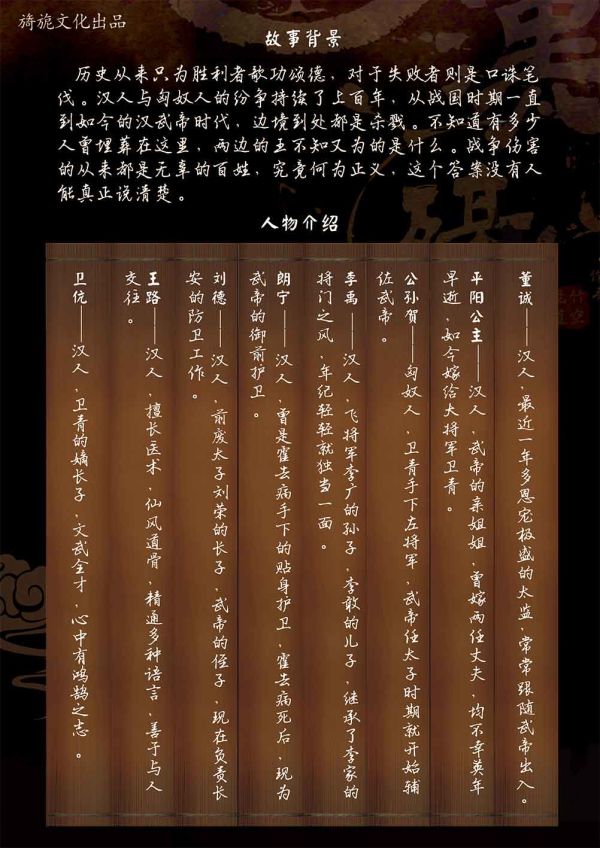 旖旎文化出品
故事背景
历史从来只为胜利者歌功颂德，对于失败者则是口诛笔
伐。汉人与匈奴人的纷争持续了上百年，从战国时期一直
到如今的汉武帝时代，边境到处都是杀戮。不知道有多少
人曾埋葬在这里，两边的王不知又为的是什么。战争伤害
的从来都是无辜的百姓，究竟何为正义，这个答案没有人
能真正说清楚。
人物介绍
董诚——汉人，最近一年多恩宠极盛的太监，常常跟随武帝出入。
平阳公主——汉人，武帝的亲姐姐，曾嫁两任丈夫，均不幸英年
早逝，如今嫁给大将军卫青。
公孙贺——匈奴人，卫青手下左将军，武帝任太子时期就开始辅
佐武帝。
李禹——汉人，飞将军李广的孙子，李敢的儿子，继承了李家的
将门之风，年纪轻轻就独当一面。
朗宁——汉人，曾是霍去病手下的贴身护卫，霍去病死后，现为
武帝的御前护卫。
刘德——汉人，前废太子刘荣的长子，武帝的侄子，现在负责长
安的防卫工作。
王路——汉人，擅长医术，仙风道骨，精通多种语言，善于与人
交往。
卫伉——汉人，卫青的嫡长子，文武全才，心中有鸿鹄之志。